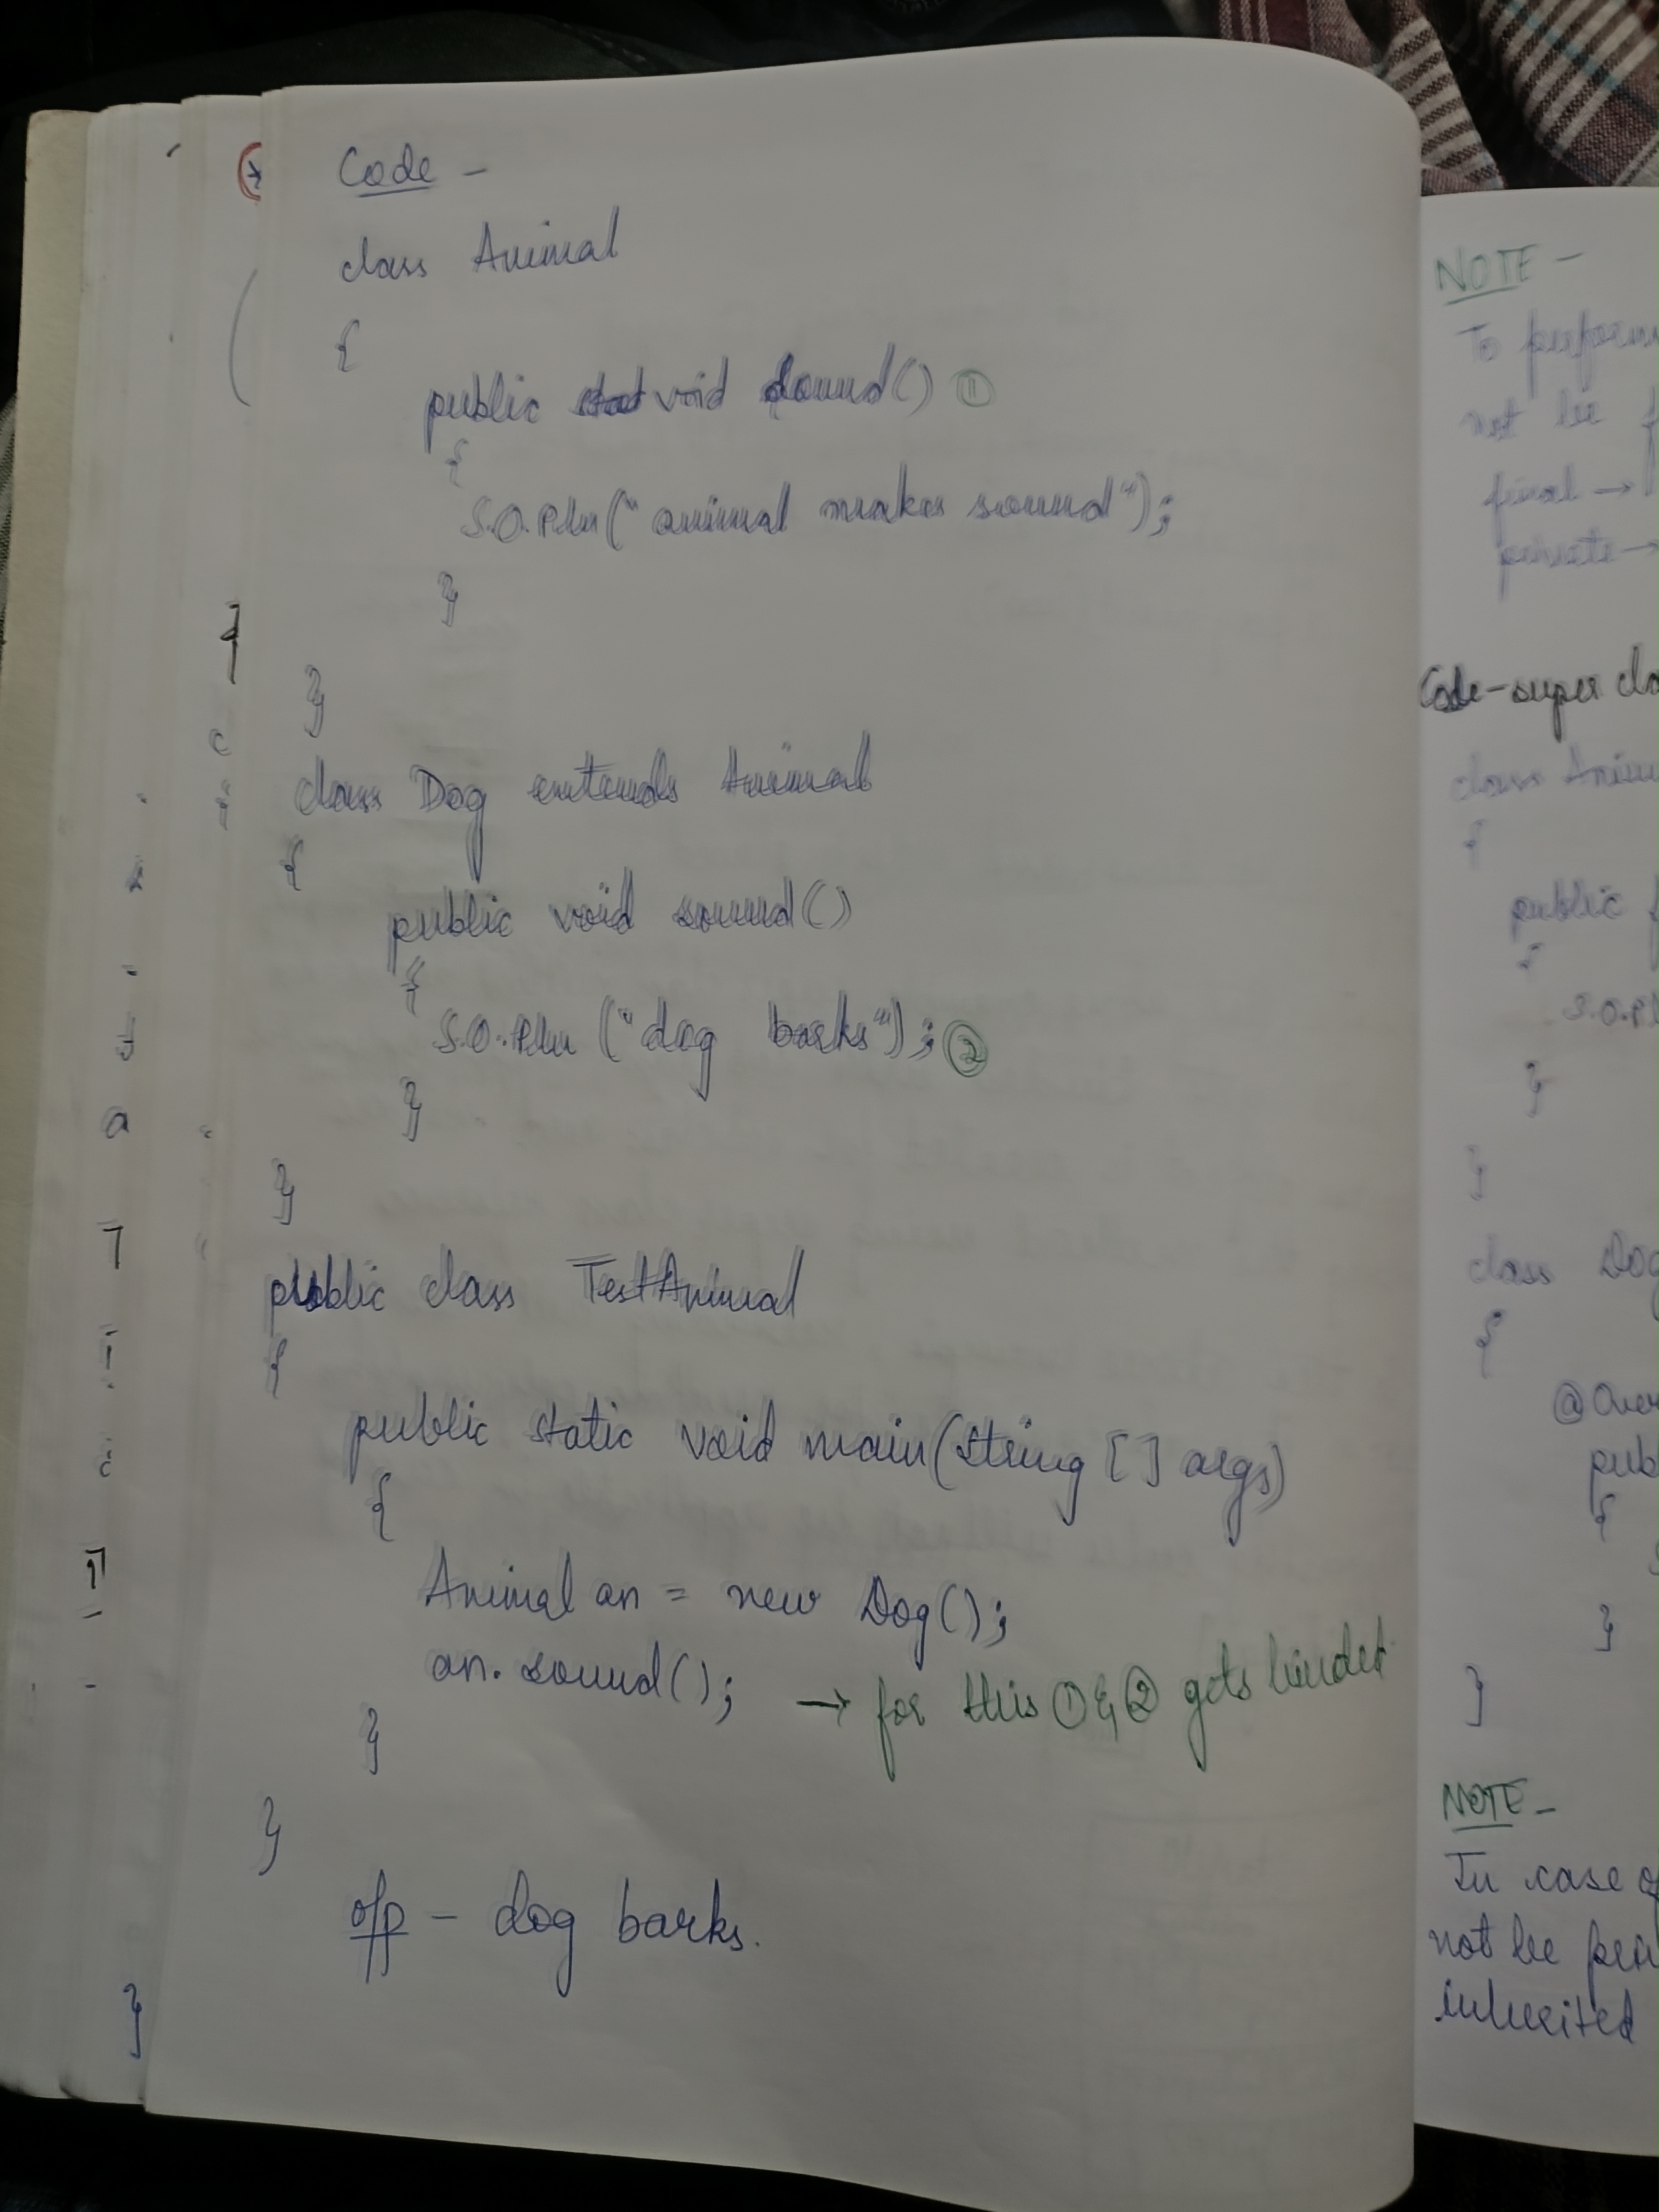 Code -
class Animal
{
public void sound() ①
{
S.O.Pln("animal makes sound");
}
}
class Dog extends Animal
{
public void sound()
{
S.O.Pln ("dog barks"); ②
}
}
public class TestAnimal
{
public static void main(String [] args)
{
Animal an = new Dog();
an. sound(); → for this ① & ② gets binded
}
}
o/p - dog barks.
}
NOTE -
To perform
not be
final →
private →
Code-super cla
class Anim
{
public f
{
S.O.Pl
}
}
class Dog
{
@Over
pub
{
}
}
NOTE -
In case of
not be
inherited